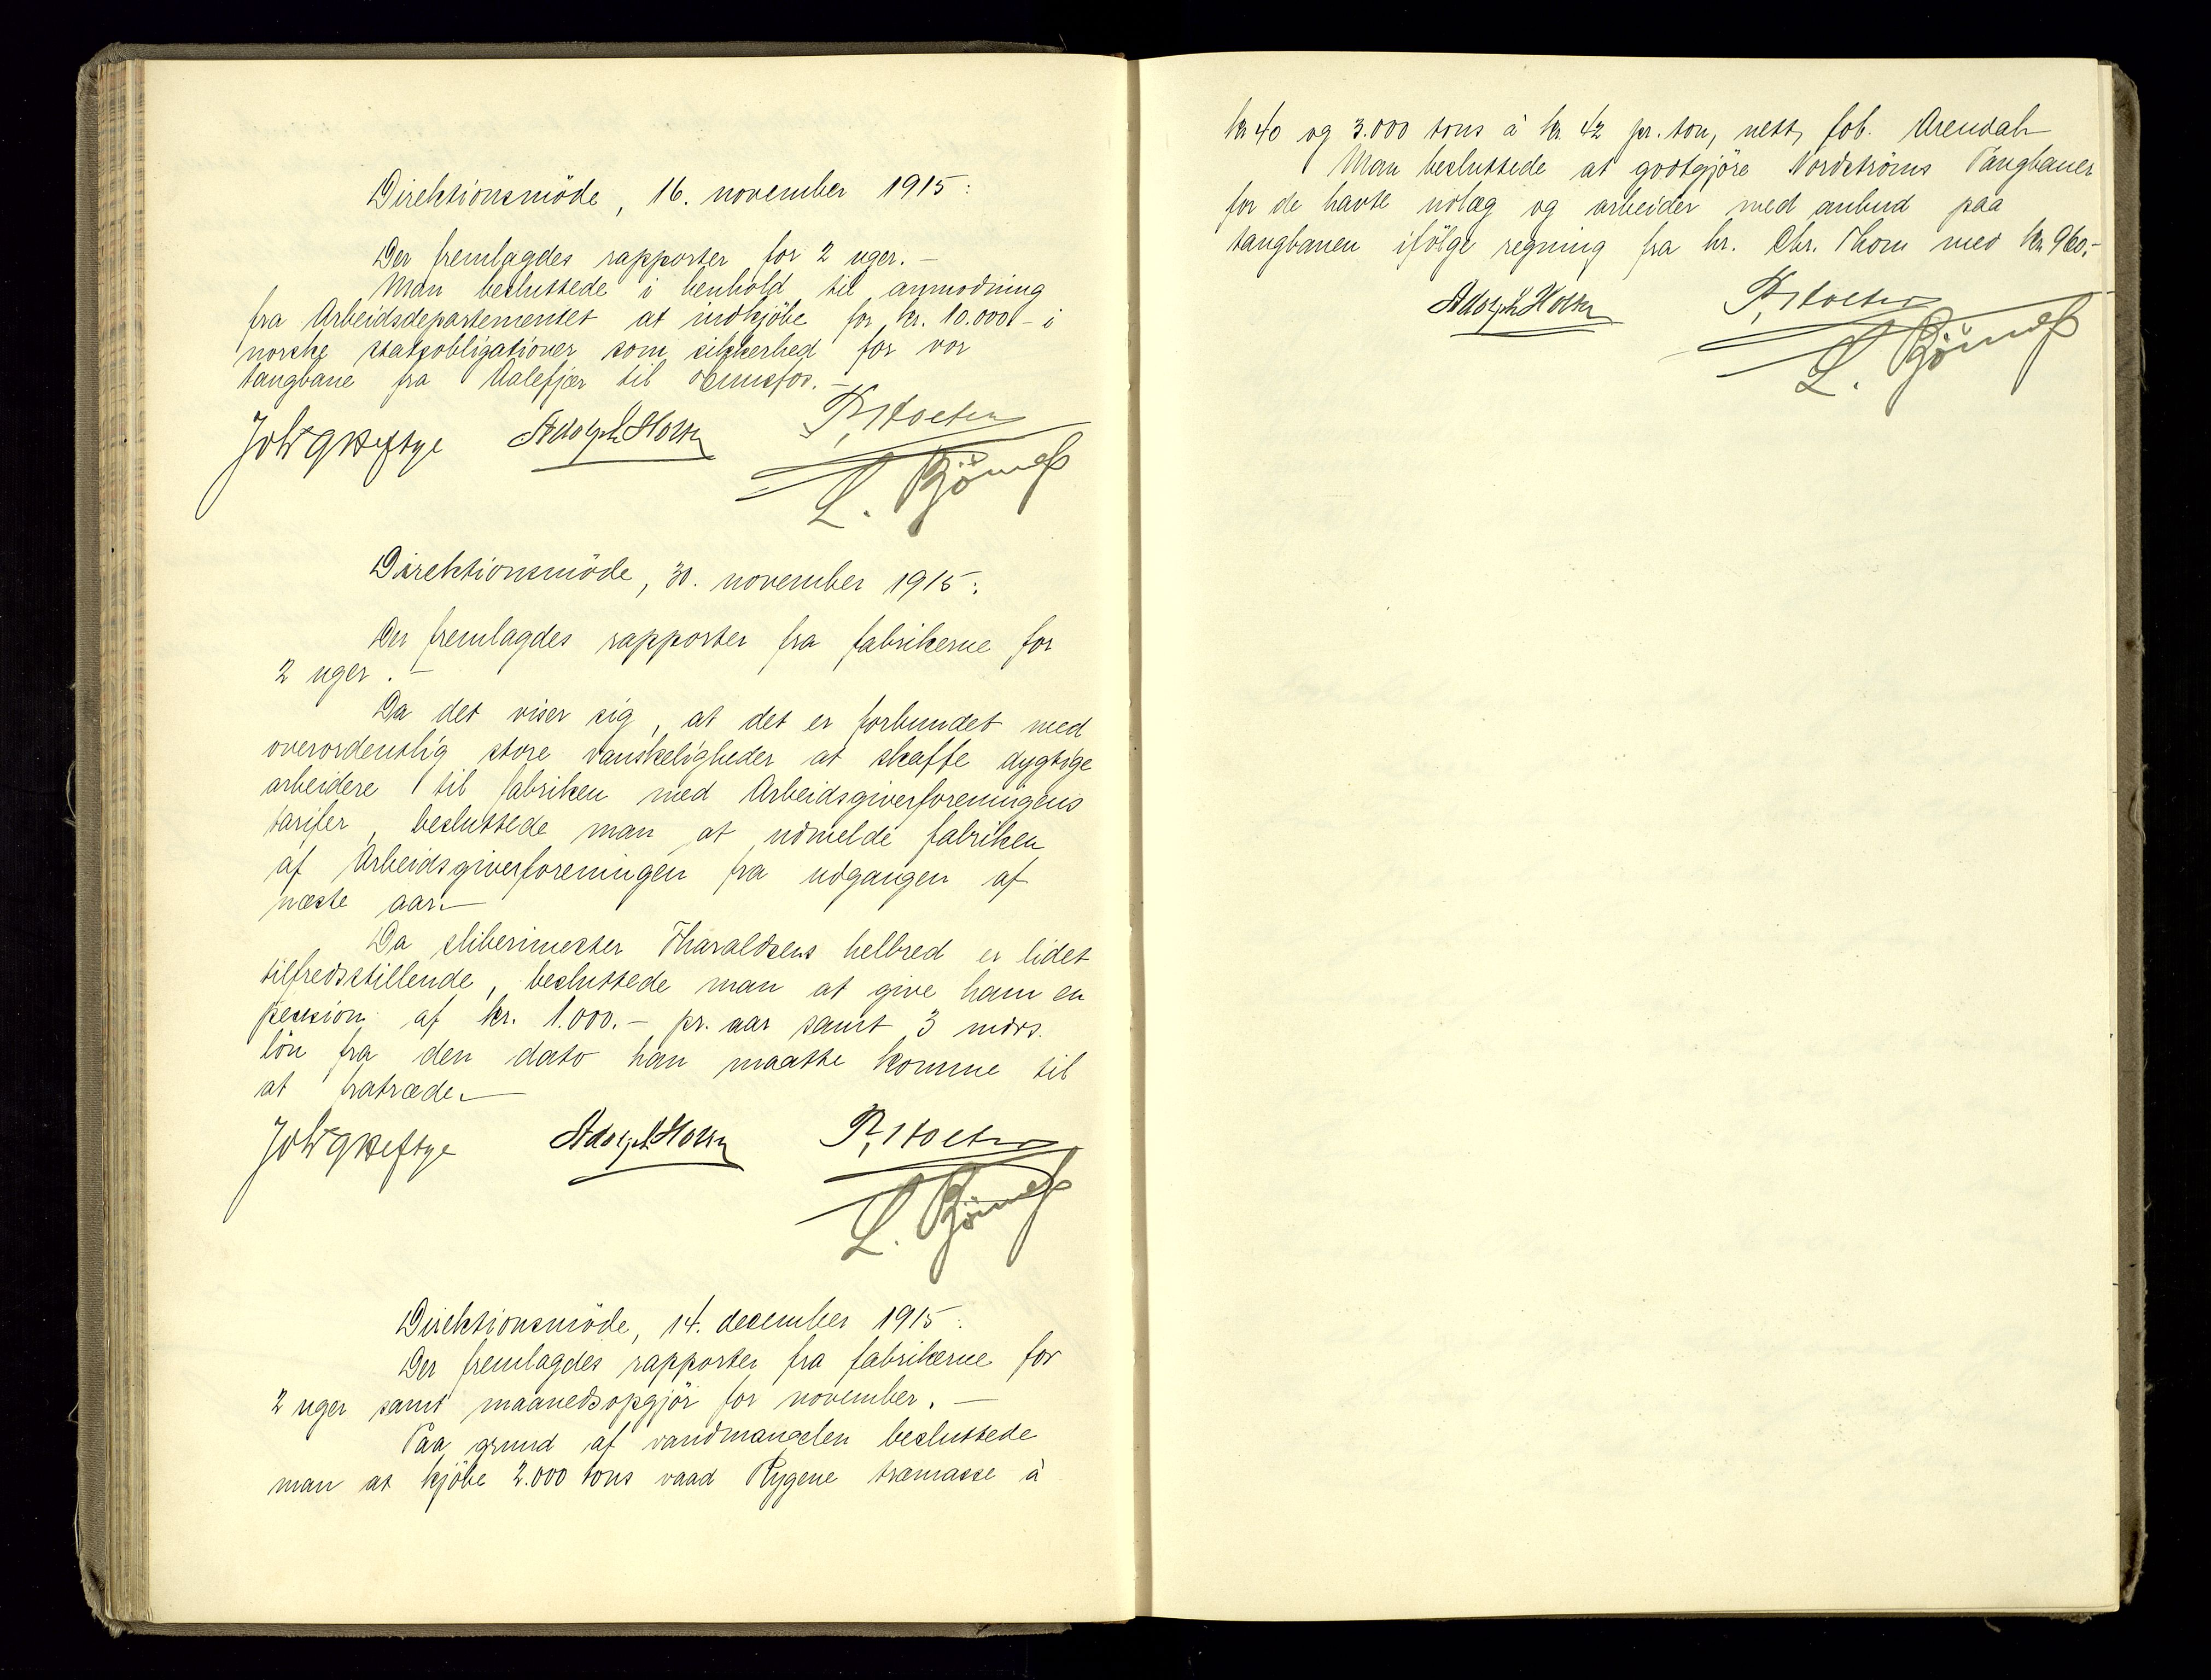 Direktionsmöde, 16. november 1915:
Der fremlagdes rapporter for 2 uger. –
Man besluttede i henhold til anmodning
fra Arbeidsdepartementet at indkjöbe for kr. 10.000 – i
norske statsobligationer som sikkerhed for vor
taugbane fra Aalefjær til
Adolph
Direktionsmöde, 30. november 1915:
Der fremlagdes rapporter fra fabrikerne for
2 uger. –
Da det viser sig, at det er forbundet med
overordentlig store vanskeligheder at skaffe dygtige
arbeidere til fabriken med Arbeidsgiverforeningens
tarifer, besluttede man at udmelde fabriken
af Arbeidsgiverforeningen fra udgangen af
næste aar. –
Da sliberimester Tharaldsens helbred er lidet
tilfredsstillende, besluttede man at give ham en
pension af kr. 1.000. – pr. aar samt 3 mdrs.
lön fra den dato han maatte komme til
at fratræde. –
Adolph
Direktionsmöde, 14. december 1915:
Der fremlagdes rapporter fra fabrikerne for
2 uger samt maanedsopgjör for november. –
Paa grund af vandmangelen besluttede
man at kjöbe 2.000 tons vaad Rygene træmasse à
kr 40 og 3.000 tons à kr. 42 pr. ton, nett, fob. Arendal –
Man besluttede at godtgjöre Nordströms Taugbaner
for de havte udlæg og arbeider med anbud paa
taugbanen ifölge regning fra hr. Chr. Thom med kr. 960.–
Adolph